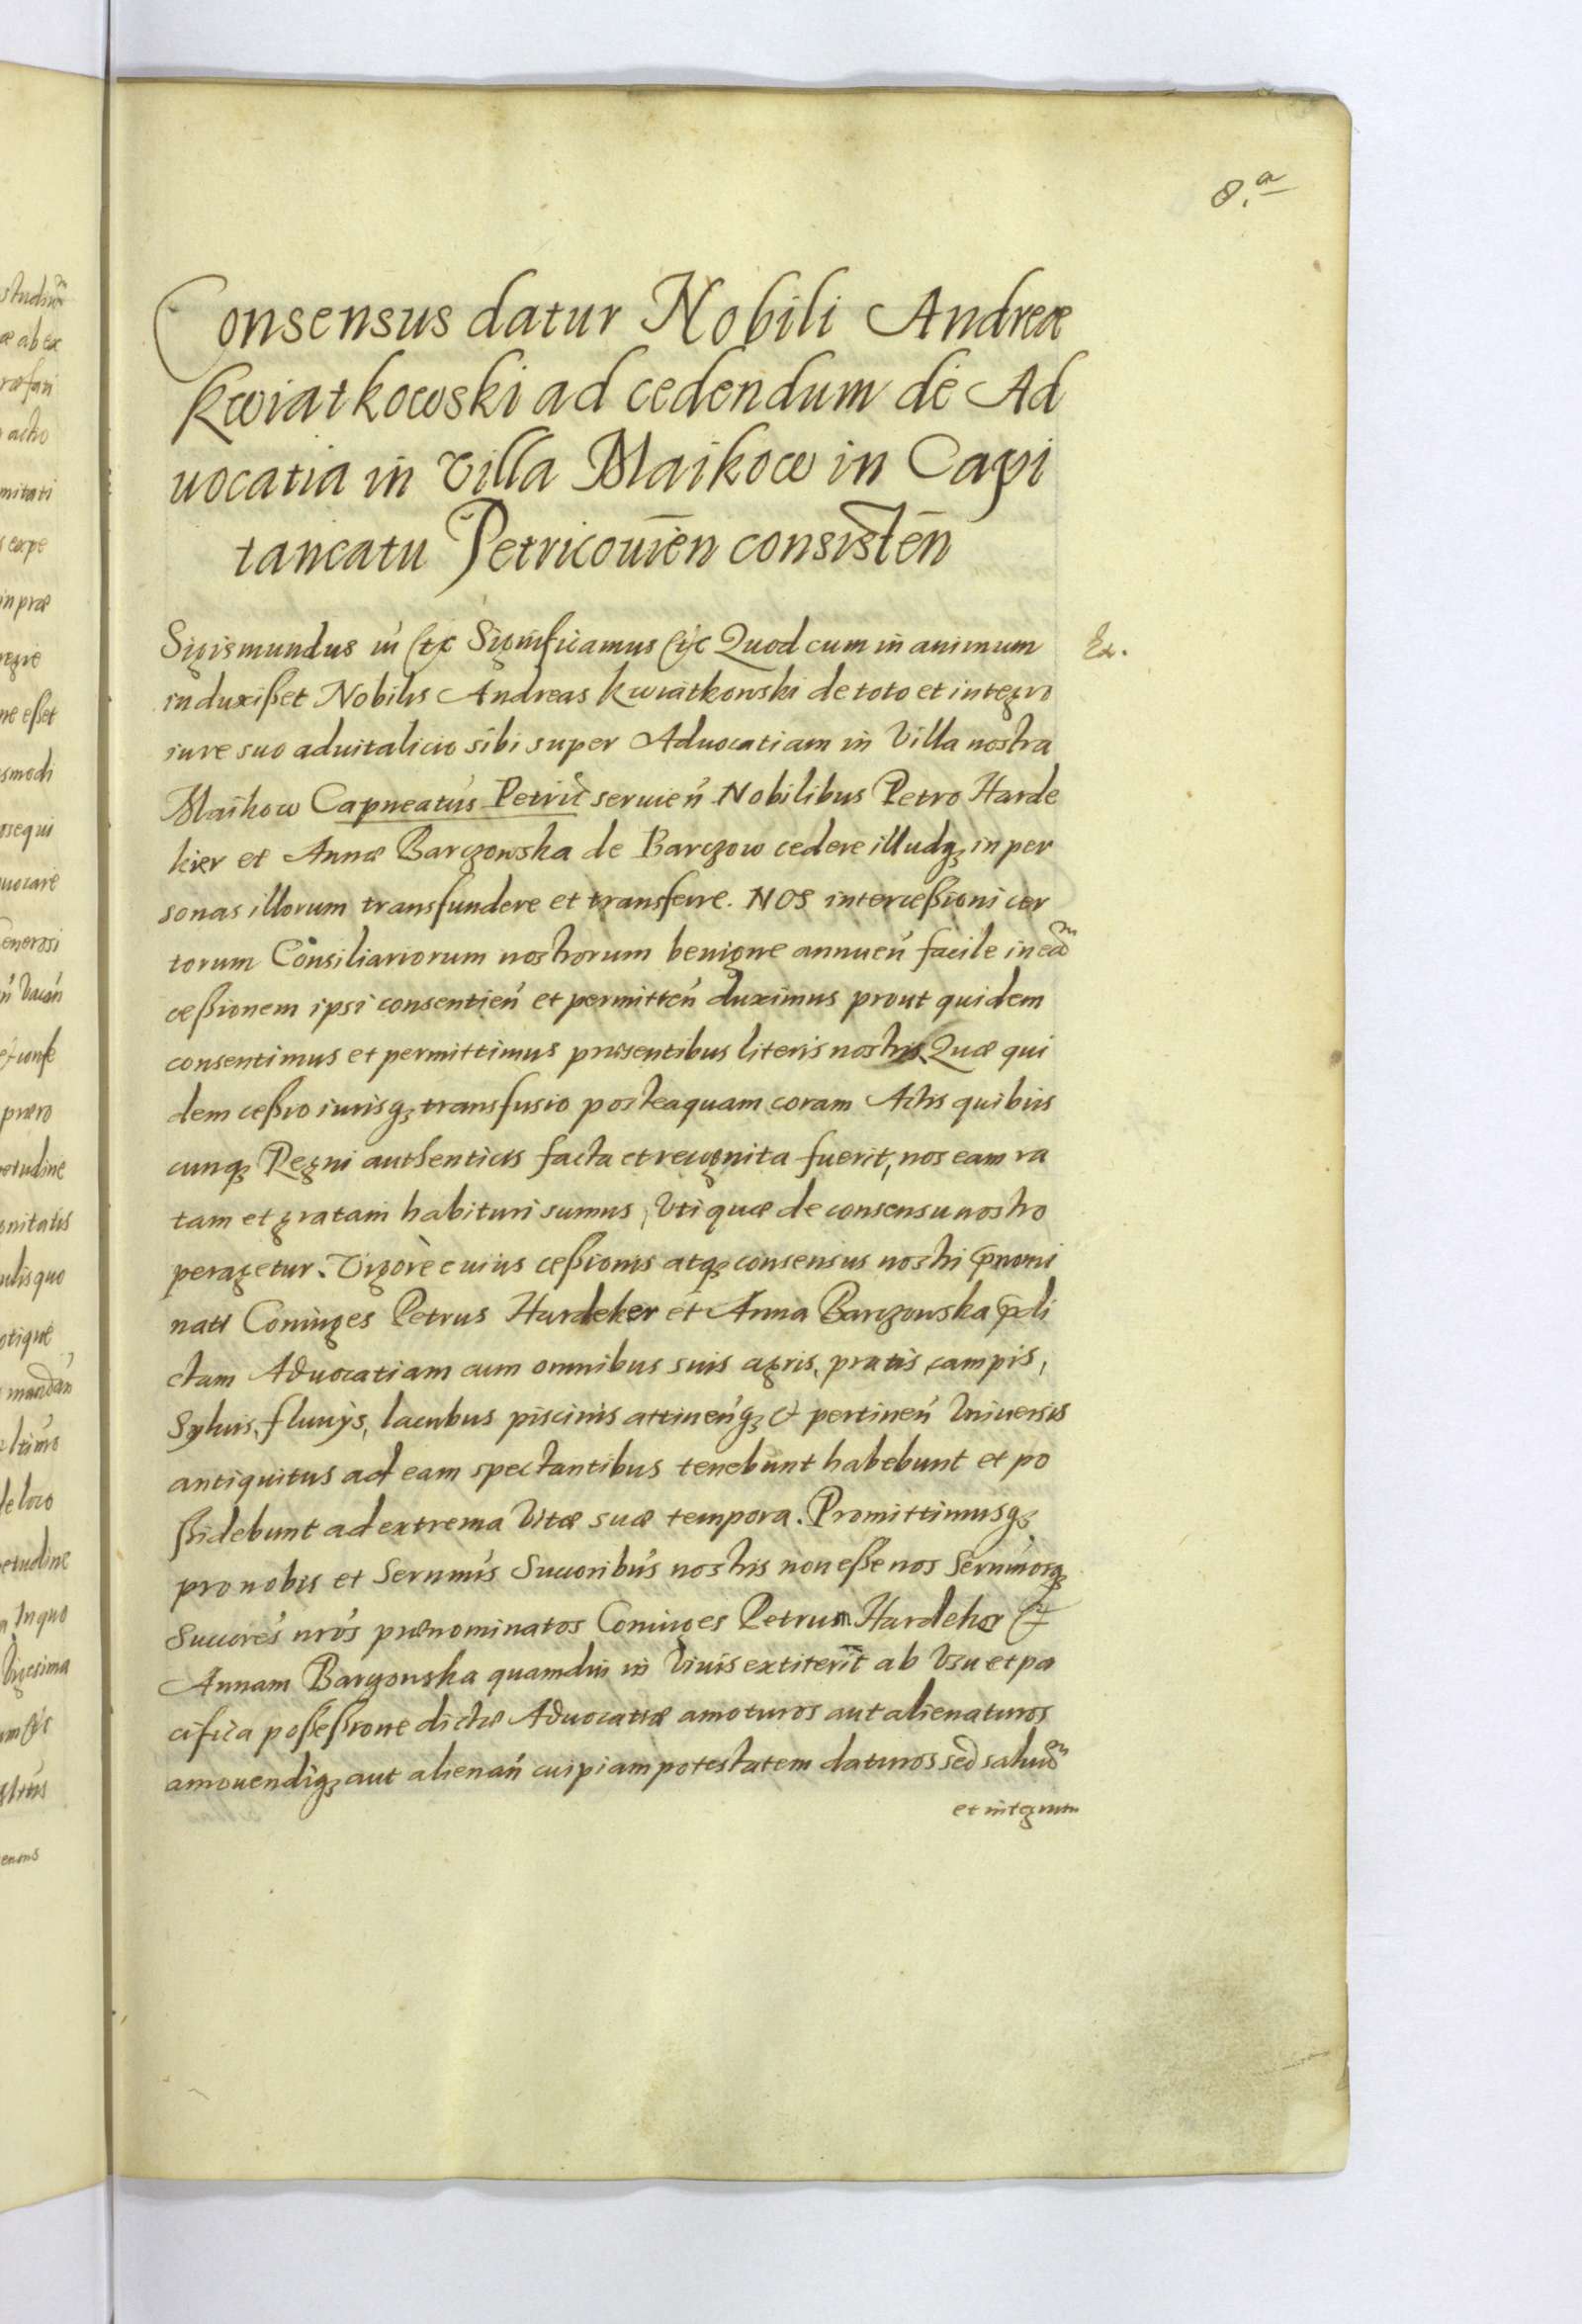 8.a
Consensus datur Nobili Andreæ
Kwiatkowski ad cedendum de Ad
uocatia in Villa Maikow in Capi
taneatu Petricouien̄ consisten̄
Sigismundus iii etc Significamus etc Quod cum in animum
Ex.
induxißet Nobilis Andreas Kwiatkowski de toto et integro
iure suo aduitalicio sibi super Aduocatiam in Villa nostra
Maikow Capneatus Petric seruien̄ Nobilibus Petro Harde
kier et Annæ Barczowska de Barczow cedere illudqꝫ in per
sonas illorum transfundere et transferre. NOS interceßioni cer
torum Consiliariorum nostrorum benigne annuen̄ facile in eam
ceßionem ipsi consentien̄ et permitten̄ duximus prout quidem
consentimus et permittimus præsentibus literis nostris Quæ qui
dem ceßio iurisqꝫ transfusio posteaquam coram Actis quibus
cunqꝫ Regni authenticis facta et recognita fuerit, nos eam ra
tam et gratam habituri sumus, Vti quæ de consensu nostro
peragetur. Vigore cuius ceßionis atqꝫ consensus nostri p̄nomi
nati Coniuges Petrus Hardeker et Anna Barczowska p̄di
ctam Aduocatiam cum omnibus suis agris, pratis, campis,
Syluis, fluuijs, lacubus piscinis attinen̄qꝫ & pertinen̄ Vniuersis
antiquitus ad eam spectantibus tenebunt habebunt et po
ßidebunt ad extrema Vitæ suæ tempora. Promittimusqꝫ
pro nobis et Sernmis Succoribus nostris non eße nos Sernmosqꝫ
Succores nros prænominatos Coniuges Petrum Hardeker &
Annam Barczowska quamdiu in Viuis extiterint ab Vsu et pa
cifica poßeßione dictæ Aduocatiæ amoturos aut alienaturos
amouendiqꝫ aut alienan̄ cuipiam potestatem daturos sed saluum
et integrum